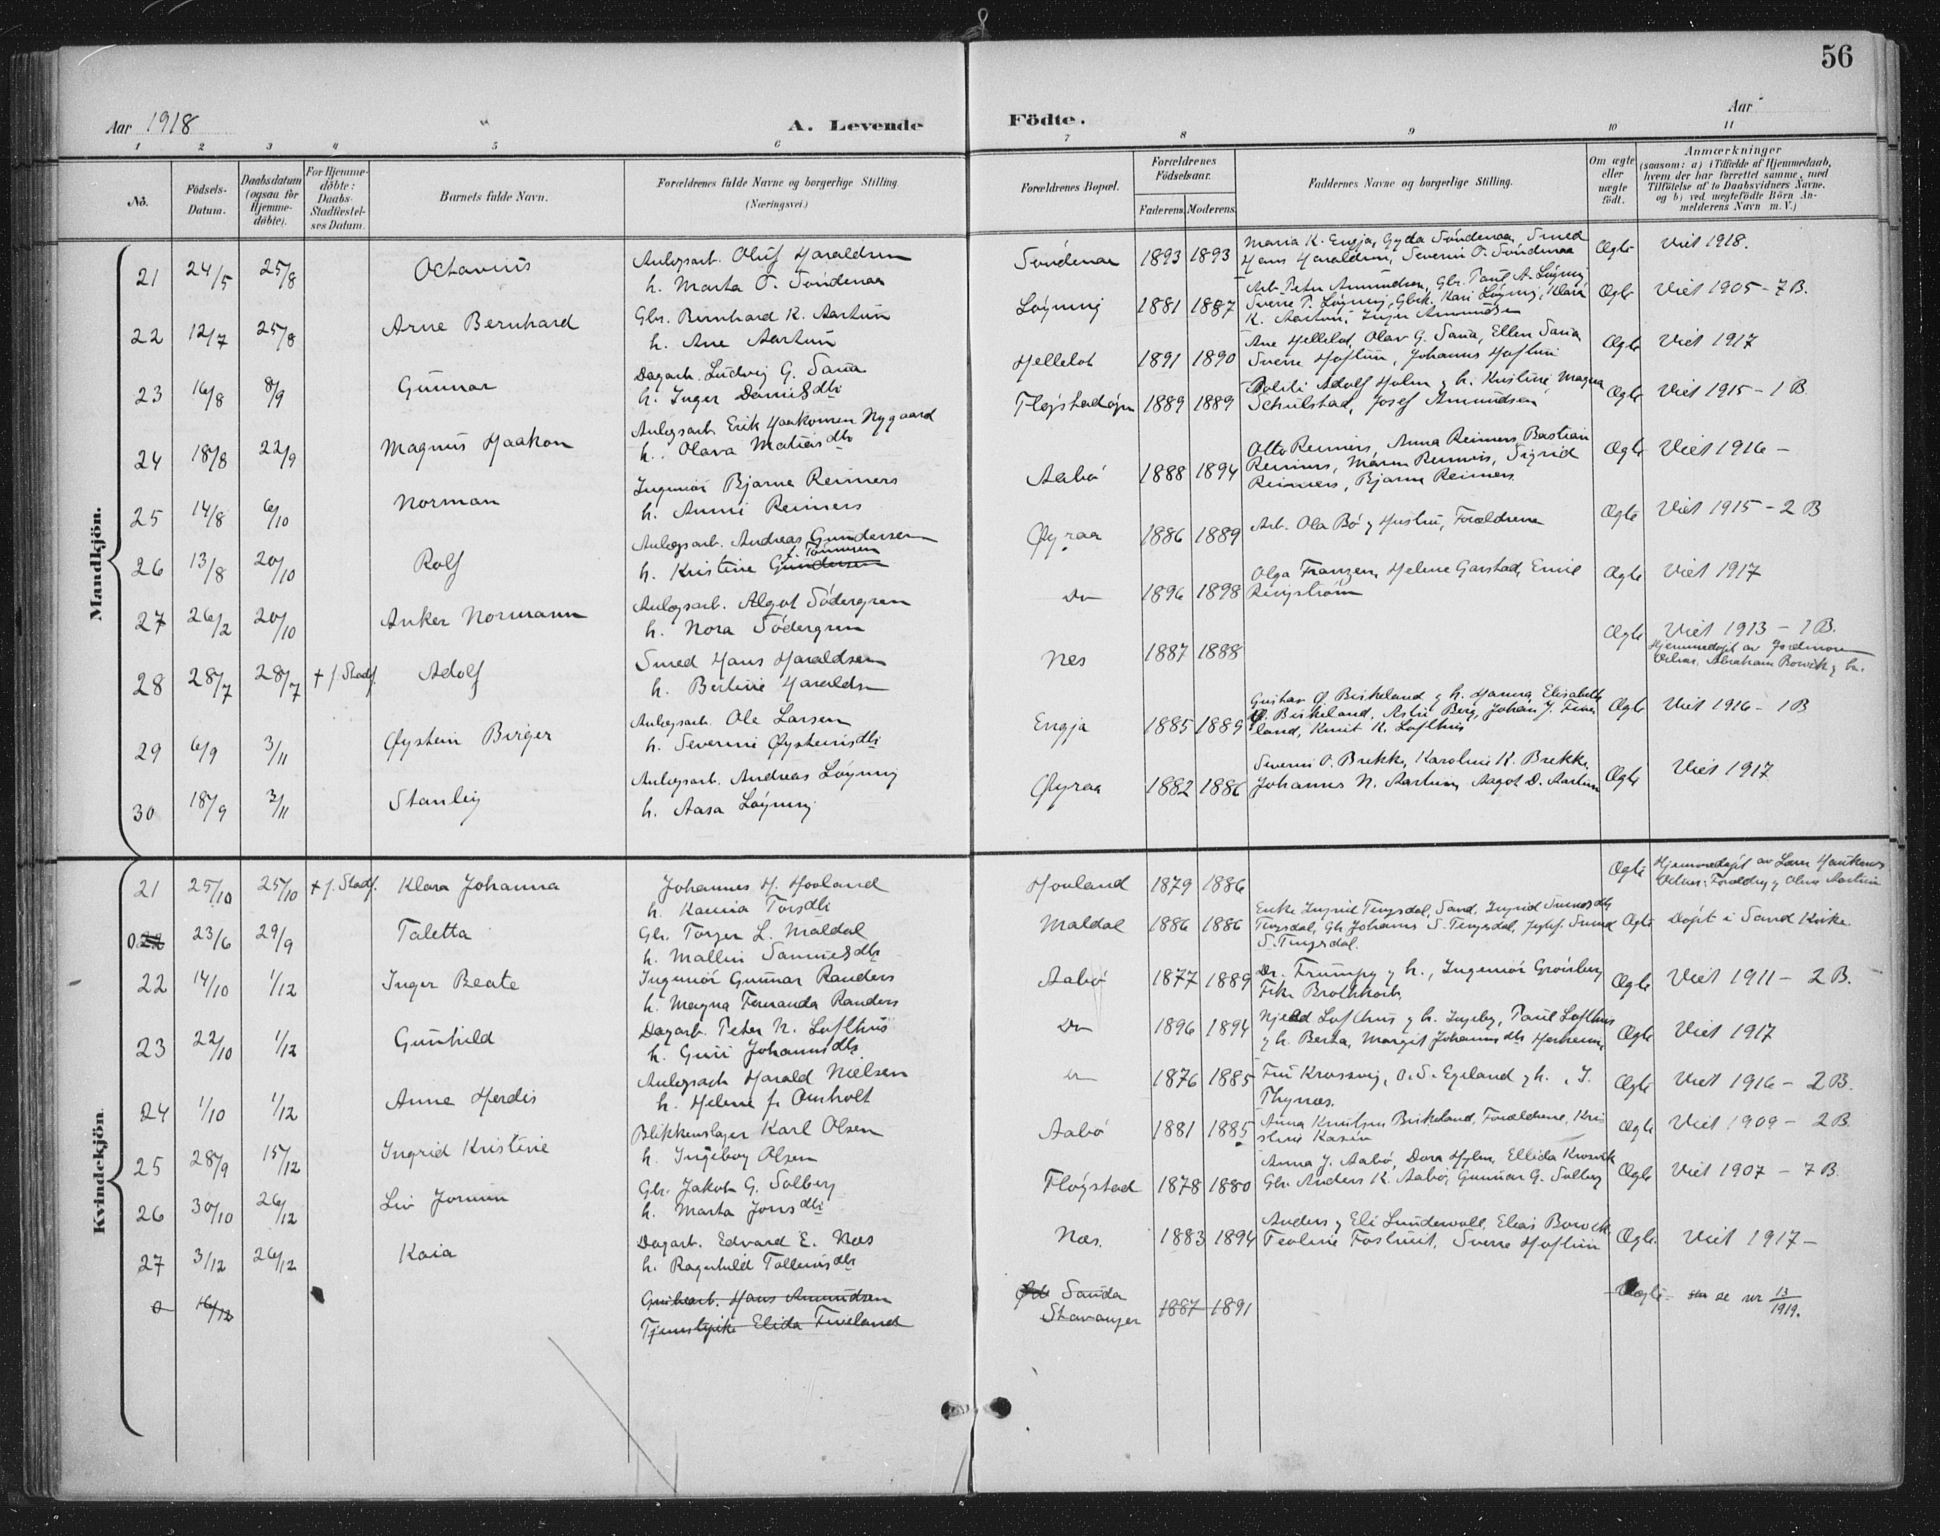 56
Aar 1918
A. Levende
Födte.
Aar
1 2 3 4 5 6 7 8 9 10 11
No.
Födsels-Datum.
Daabsdatum (ogsaa for Hjemme-döbte).
For Hjemme-döbte: Daabs-Stadfæstel-ses Datum.
Barnets fulde Navn.
Forældrenes fulde Navne og borgerlige Stilling.
(Næringsvei.)
Forældrenes Bopæl.
Forældrenes Födselsaar.
Faderens Moderens
Faddernes Navne og borgerlige Stilling.
Om ægte eller uægte födt.
Anmærkninger
(saasom: a) i Tilfælde af Hjemmedaab,
hvem der har forrettet samme, med
Tilföielse af to Daabsvidners Navne,
og b) ved uægtefödte Börn An-
melderens Navn m. V.)
Mandkjön.
21 24/5 25/8 Octavius Anlegsarb. Oluf Haraldsen
h. Marta O. Söndenaa
Söndenaa 1893 1893 Maria K. Engja, Gyda Söndenaa, Smed
Hans Haraldsen, Severin O. Söndenaa
Ægte Viet 1918.
22 12/7 25/8 Arne Bernhard Gbr. Bernhard K. Aartun
h. Ane Aartun
Löyning 1881 1887 Arb. Peter Amundsen, Gbr. Paul A. Löyning
Sverre P. Löyning, Gbrk. Kari Löyning, Klara
K. Aartun, Inger Amundsen
Ægte Viet 1905 - 7 B.
23 16/8 8/9 Gunnar Dagarb. Ludvig G. Sana
h. Inger Danielsdtr
Helleland 1891 1890 Ane Hellelot, Olav G. Sana, Ellen Sana
Sverre Hoftun, Johannes Hoftun
Ægte Viet 1917
24 18/8 22/9 Magnus Haakon Anlegsarb. Erik Haakonsen Nygaard
h. Olava Matiasdtr
Fløjstadøyra 1889 1889 Politi Adolf Holm g h. Kristine, Magna
Schulstad, Josef Amundsen
Ægte Viet 1915 - 1 B.
25 14/8 6/10 Norman Ingeniör Bjarne Reimers
h. Anni Reimers
Aabö 1888 1894 Otto Reimers, Anna Reimers, Bastian
Reimers, Maren Reimers, Sigrid
Reimers, Bjarne Reimers
Ægte Viet 1916 -
26 13/8 20/10 Rolf Anlegsarb. Andreas Gundersen
h. Kristine Gundersen
Øyraa 1886 1889 Arb. Ola Bö g Hustru, Forældrene
Ægte Viet 1915 - 2 B
27 26/2 20/10 Anker Normann Anlegsarb. Algot Södergren
h. Nora Södergren
Do 1896 1898 Olga Franzen, Helene Garstad, Emil
Ringström
Ægte Viet 1917
28 28/7 28/7 + f. Stadf. Adolf Smed Hans Haraldsen
h. Bertine Haraldsen
Nes 1887 1888
Ægte Viet 1913 - 1 B.
Hjemmedøpt av Jordmoren
Vitner, Abraham Borvik g fru.
29 6/9 3/11 Øystein Birger Anlegsarb. Ole Larsen
h. Severine Øysteinsdtr
Engja 1885 1889 Gustav Ø. Birkeland g h. Hanna, Elisabeth
Ø. Birkeland, Astri Berg, Johan J. Five-
land, Knut K. Lofthus
Ægte Viet 1916 - 1 B
30 18/9 3/11 Stanley Anlegsarb. Andreas Löyning
h. Aasa Löyning
Øyraa 1882 1886 Severin O. Brekke, Karoline K. Brekke,
Johannes N. Aartun, Aagot D. Aartun
Ægte Viet 1917
Kvindekjön
21 25/10 25/10 + f. Stadf. Klara Johanna Johannes H. Hovland
h. Kamia Torsdtr
Hovland 1879 1886
Ægte Hjemmedøpt av Lærer Haukenes
Vitner: Forældre g Olina Aartun
0.22 23/6 29/9 Taletta Gbr. Torger L. Maldal
h. Mallin Samuelsdtr
Maldal 1886 1886 Enke Ingrid Tengsdal, Sand, Ingrid Svensdtr
Tengsdal, Gbr Johannes S. Tengsdal, Svend
S. Tengsdal.
Ægte Döpt i Sand Kirke
22 14/10 1/12 Inger Beate Ingeniör Gunnar Randers
h. Magna Fernanda Randers
Aabö 1877 1889 Dr. Trumpy g h., Ingeniör Grönberg
Frk. Brothkorb
Ægte Viet 1911 - 2 B.
23 22/10 1/12 Gunhild Dagarb. Peter N. Lofthus
h. Guri Johannesdtr
Do 1896 1894 Njeld Lofthus g h. Ingeborg, Paul Lofthus
g h. Berta, Margit Johannesdtr Herheim
Ægte Viet 1917
24 1/10 1/12 Anne Herdis Anlegsarb Harald Nielsen
h. Helene f. Omholt
Do 1876 1885 Fru Krossvig, O. S. Egeland g h., J.
Thynæs.
Ægte Viet 1916 - 2 B.
25 28/9 15/12 Ingrid Kristine Blikkenslager Karl Olsen
h. Ingeborg Olsen
Aabö 1881 1885 Anna Knutsen Birkeland, Forældrene, Kri-
stine Kasin
Ægte Viet 1909 - 2 B.
26 30/10 26/12 Liv Jorunn Gbr. Jakob G. Solberg
h. Marta Jonsdtr
Fløgstad 1878 1880 Anna J. Aabö, Dora Hylen, Ellida Krosvik
Gbr Anders K. Aabö, Gunnar G. Solberg
Ægte Viet 1907 - 7 B.
27 3/12 26/12 Kaia Dagarb. Edvard E. Næs
h. Ragnhild Tollevsdtr
Næs. 1883 1894 Anders g Eli Lundevold, Elias Borvik
Teoline Fostveit, Sverre Hoftun
Ægte. Viet 1917 -
0 16/12 Grubearb. Hans Amundsen
Tjenestepike Elida Fiveland
Sauda
Stavanger 1887 1891
Uægte se nr 13/1919.